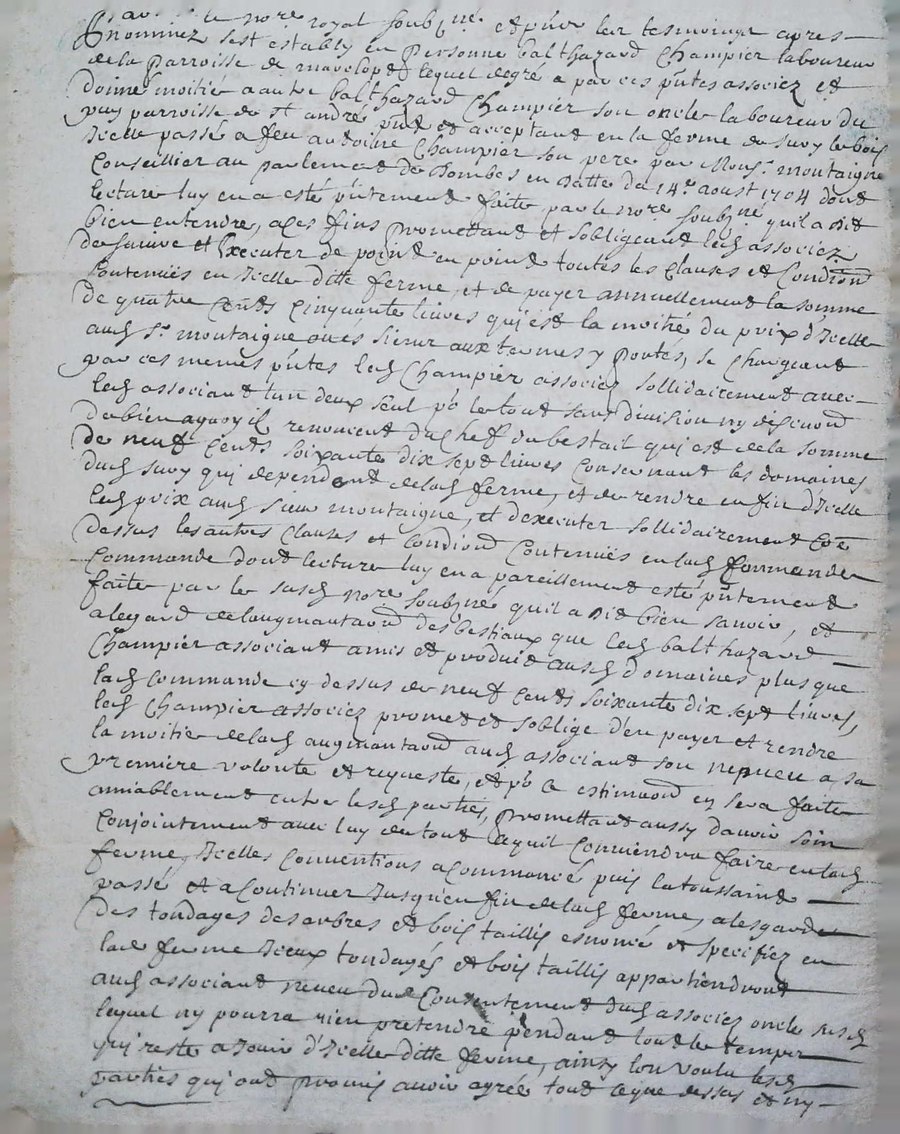 le nore royal soubzné et pñts les tesmoings apres
nommez sest estably en Personne balthazard Champier laboureur
de la Parroisse de lequel degré a par ces pñtes associez et
donné moitié a autre balthazard Champier son oncle laboureur du
parroisse de St andré pñt et acceptant en la ferme du Suzy le bois
Icelle passé a feu Champier son pere par Mons.r montaigne
Conseillier au parlement de Dombes en Datte du 14e aoust 1704 dont
lecture luy en a esté pñtement faite par le nore soubzné qu'il a dit
bien entendre, a ces fins Promettant et sobligeant led associez
de suivre et Executer de point en point toutes les Clauses et Condions
Contenuës en Icelle ditte ferme, et de payer annuellement la somme
de quatre Cents Cinquante livres qui est la moitié du prix d'Icelle
aud Sr montaigne ou es siens aux termes y Portés, se Chargeant
par ces memes pñtes led Champier associez sollidairement avec
led associant l'un deux seul po le tout sans division ny discuon
de bien aquoy il renoncent du Chef du bestail qui est de la somme
de neuf Cents soixante dix sept livres Consernant les domaines
dud suzy qui dependent de lad ferme, et de rendre en fin d'Icelle
led prix aud sieur montaigne, et d'executer sollidairement Coe
dessus les autres Clauses et Condions Contenuës en lad Commande
Commande dont lecture luy en a pareillement esté pñtement
faite par le susd nore soubzné qu'il a dit bien sauoir, et
alegard de laugmantaon des bestiaux que led balthazard
Champier associant a mis et produit ausd domaines plus que
lad Commande cy dessus de neuf Cents soixante dix sept livres,
led Champier associez promet et soblige d'en payer et rendre
la moitié de lad augmantaon aud associant son nepueu a sa
premiere volonté et requeste, et po ce estimaon en sera faite
amiablement entre lesd parties, Promettant aussy dauoir soin
Conjointement avec luy de tout ce quil Conviendra faire en lad
ferme, Icelles Conventions a Commancé puis la toussaint
passé et a Continuer Jusqu'en fin de lad ferme, alesgard
des tondages des arbres et bois taillis esnoncé et specifiez en
lad ferme Iceux tondages et bois taillis appartiendront
aud associant neueu du Consentement dud associez oncle susd
lequel ny pourra rien pretendre pendant tout le temps
qui reste a Jouir d'Icelle ditte ferme, ainsy lont voulu lesd
parties qui ont promis auoir agrée tout ce que dessus et ny